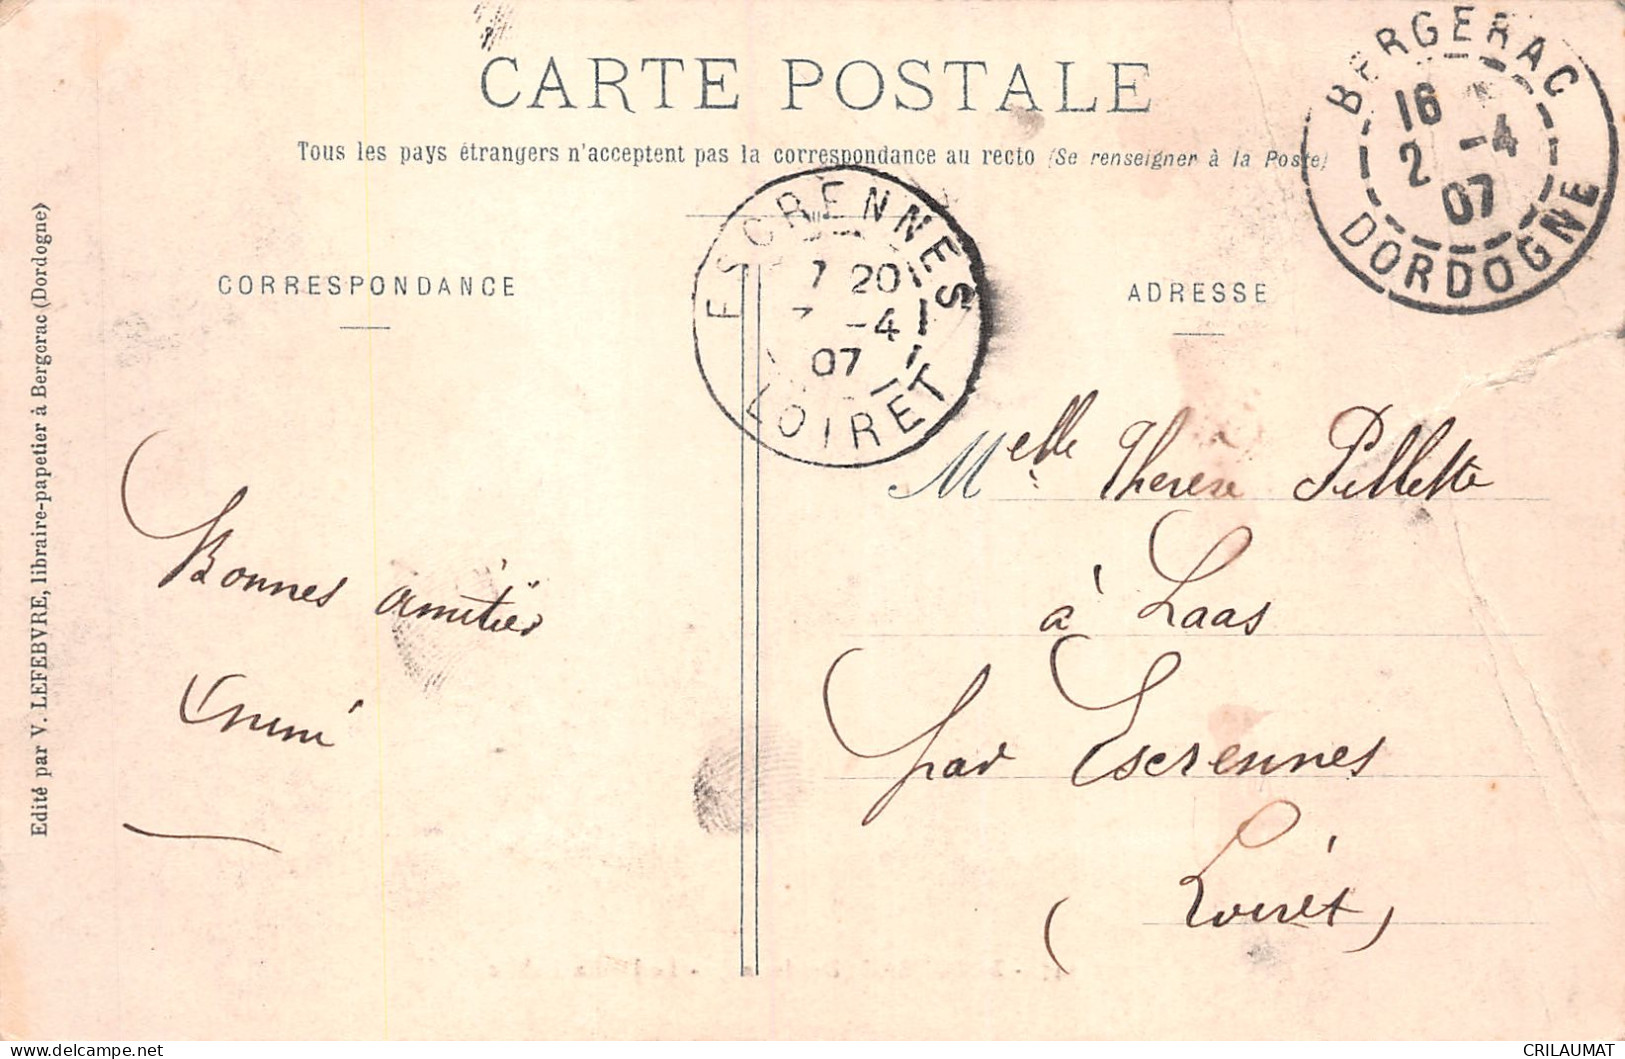 CARTE POSTALE
Tous les pays étrangers n'acceptent pas la correspondance au recto (Se renseigner à la Poste)
BERGERAC
16
2 -4
07
DORDOGNE
ESCRENNES
7 20
-4
07
LOIRET
CORRESPONDANCE
ADRESSE
Edité par V. LEFEBVRE, libraire-papetier à Bergerac (Dordogne)
Bonnes amitiés
Melle Therese Pillette
à Laas
par Escrennes
(Loiret)
CRILAUMAT